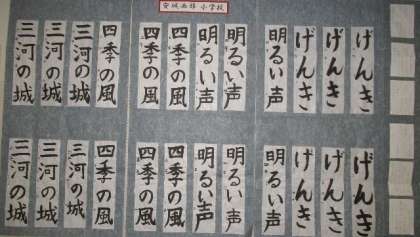 安城西部小学校
げんき
げんき
げんき
明るい声
明るい声
明るい声
四季の風
四季の風
四季の風
三河の城
三河の城
三河の城
げんき
げんき
げんき
明るい声
明るい声
明るい声
四季の風
四季の風
四季の風
三河の城
三河の城
三河の城